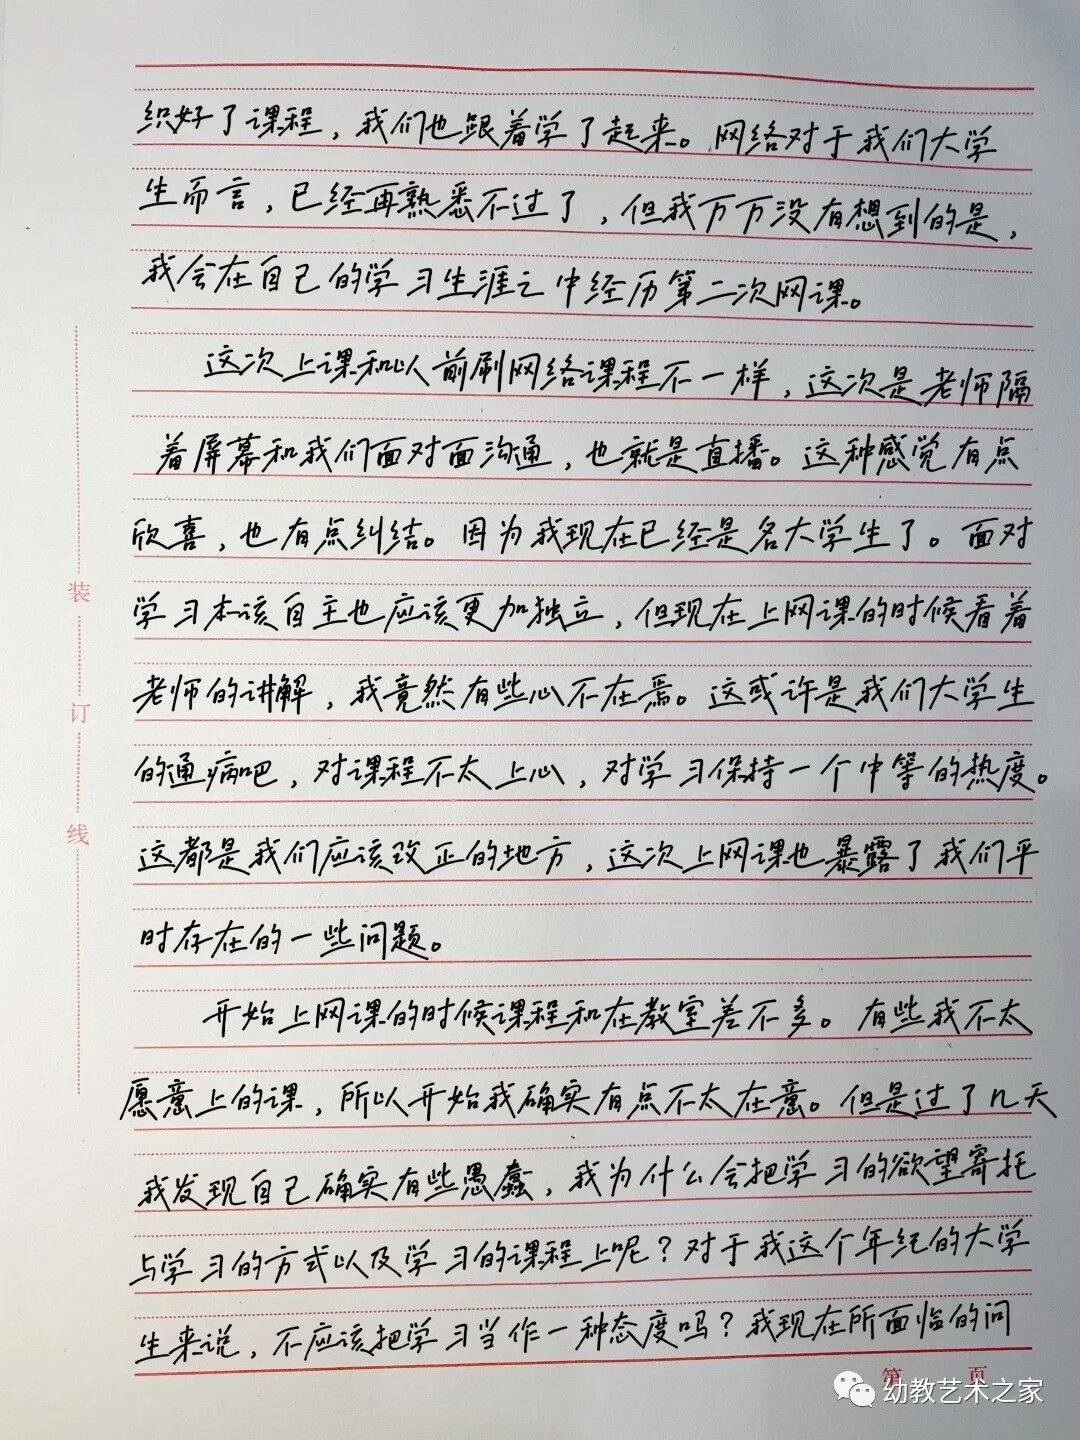 织好了课程，我们也跟着学了起来。网络对于我们大学
生而言，已经再熟悉不过了，但我万万没有想到的是，
我会在自己的学习生涯之中经历第二次网课。
这次上课和以前刷网络课程不一样，这次是老师隔
着屏幕和我们面对面沟通，也就是直播。这种感觉有点
欣喜，也有点纠结。因为我现在已经是名大学生了。面对
学习本该自主也应该更加独立，但现在上网课的时候看着
老师的讲解，我竟然有些心不在焉。这或许是我们大学生
的通病吧，对课程不太上心，对学习保持一个中等的热度。
这都是我们应该改正的地方，这次上网课也暴露了我们平
时存在的一些问题。
开始上网课的时候课程和在教室差不多。有些我不太
愿意上的课，所以开始我确实有点不太在意。但是过了几天
我发现自己确实有些愚蠢，我为什么会把学习的欲望寄托
与学习的方式以及学习的课程上呢？对于我这个年纪的大学
生来说，不应该把学习当作一种态度吗？我现在所面临的问
装
订
线
第 页
幼教艺术之家